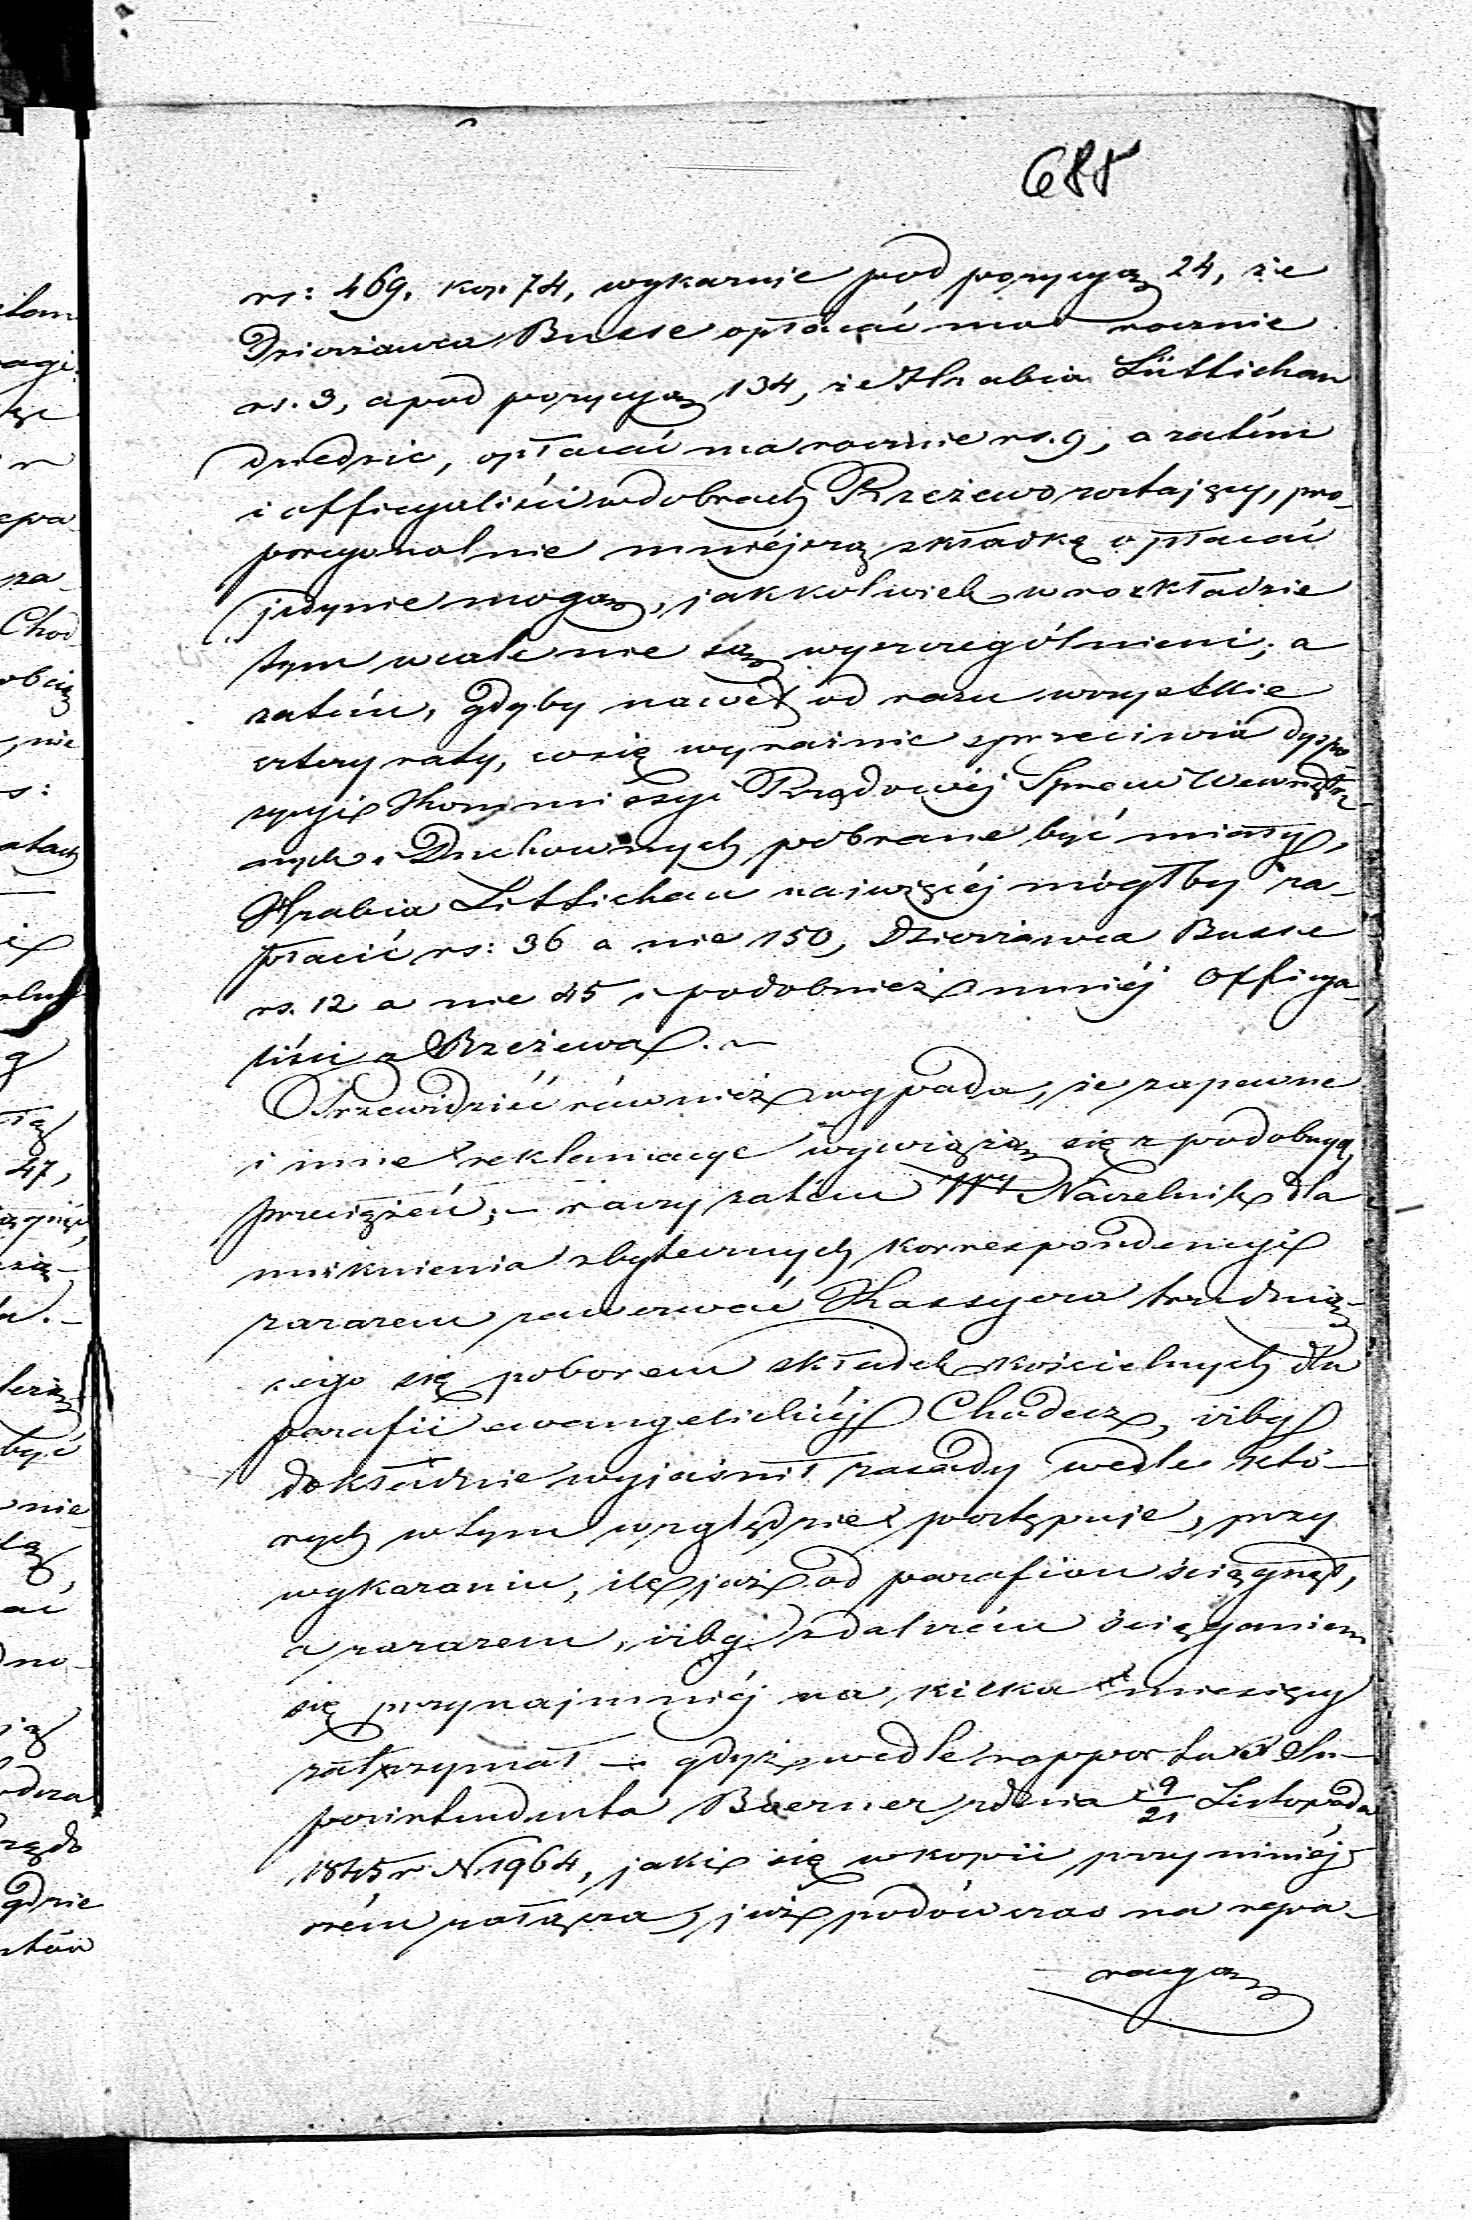 688
rs: 469. kop. 74, wykazuie pod pozycyą 24, że
Dzierżawca Busse opłacać ma rocznie
rs. 3, a pod pozycyą 134, że Hrabia Lüttichau
dziedzic, opłacać ma rocznie rs. 9, a zatém
i officyaliści w dobrach Brzeżewo zostający, pro-
porcyonalnie mniéjszą składkę opłacać
jedynie mogą, jakkolwiek w rozkładzie
tym wcale nie są wyszczególnieni; a
zatém, gdyby nawet od razu wszystkie
cztery raty, co się wyraźnie sprzeciwia dyspo-
zycyi Kommissyi Rządowéj Spraw Wewnętrz-
nych i Duchownych pobrane być miały,
Hrabia Littichau najwięcéj mógłby za-
płacić rs: 36 a nie 150, Dzierżawca Busse
rs. 12 a nie 45 i podobnież mniéj Officya-
liści z Brzeżewa. –
Przewidzieć również wypada, że zapewne
i inne reklamacye wywiążą się z podobnych
przeciążeń; – raczy zatém Naczelnik dla
uniknienia zbytecznych korrespondencyi
zarazem zawezwać Kassyera trudnią-
cego się poborem składek kościelnych dla
parafii ewangelickiéj Chodecz, iżby
dokładnie wyjaśnił zasady wedle któ-
rych w tym względzie postępuje, przy
wykazaniu, ile już od parafian ściągnął,
a zarazem, iżby z dalszém ściąganiem
się przynajmniéj na kilka miesięcy
zatrzymał – gdyż wedle rapportu Su-
perintendenta Boerner z dnia 9/21 Listopada
1845 r N 1964, jaki się w kopii przy niniéj-
szém załącza, już podówczas na repa-
racyą